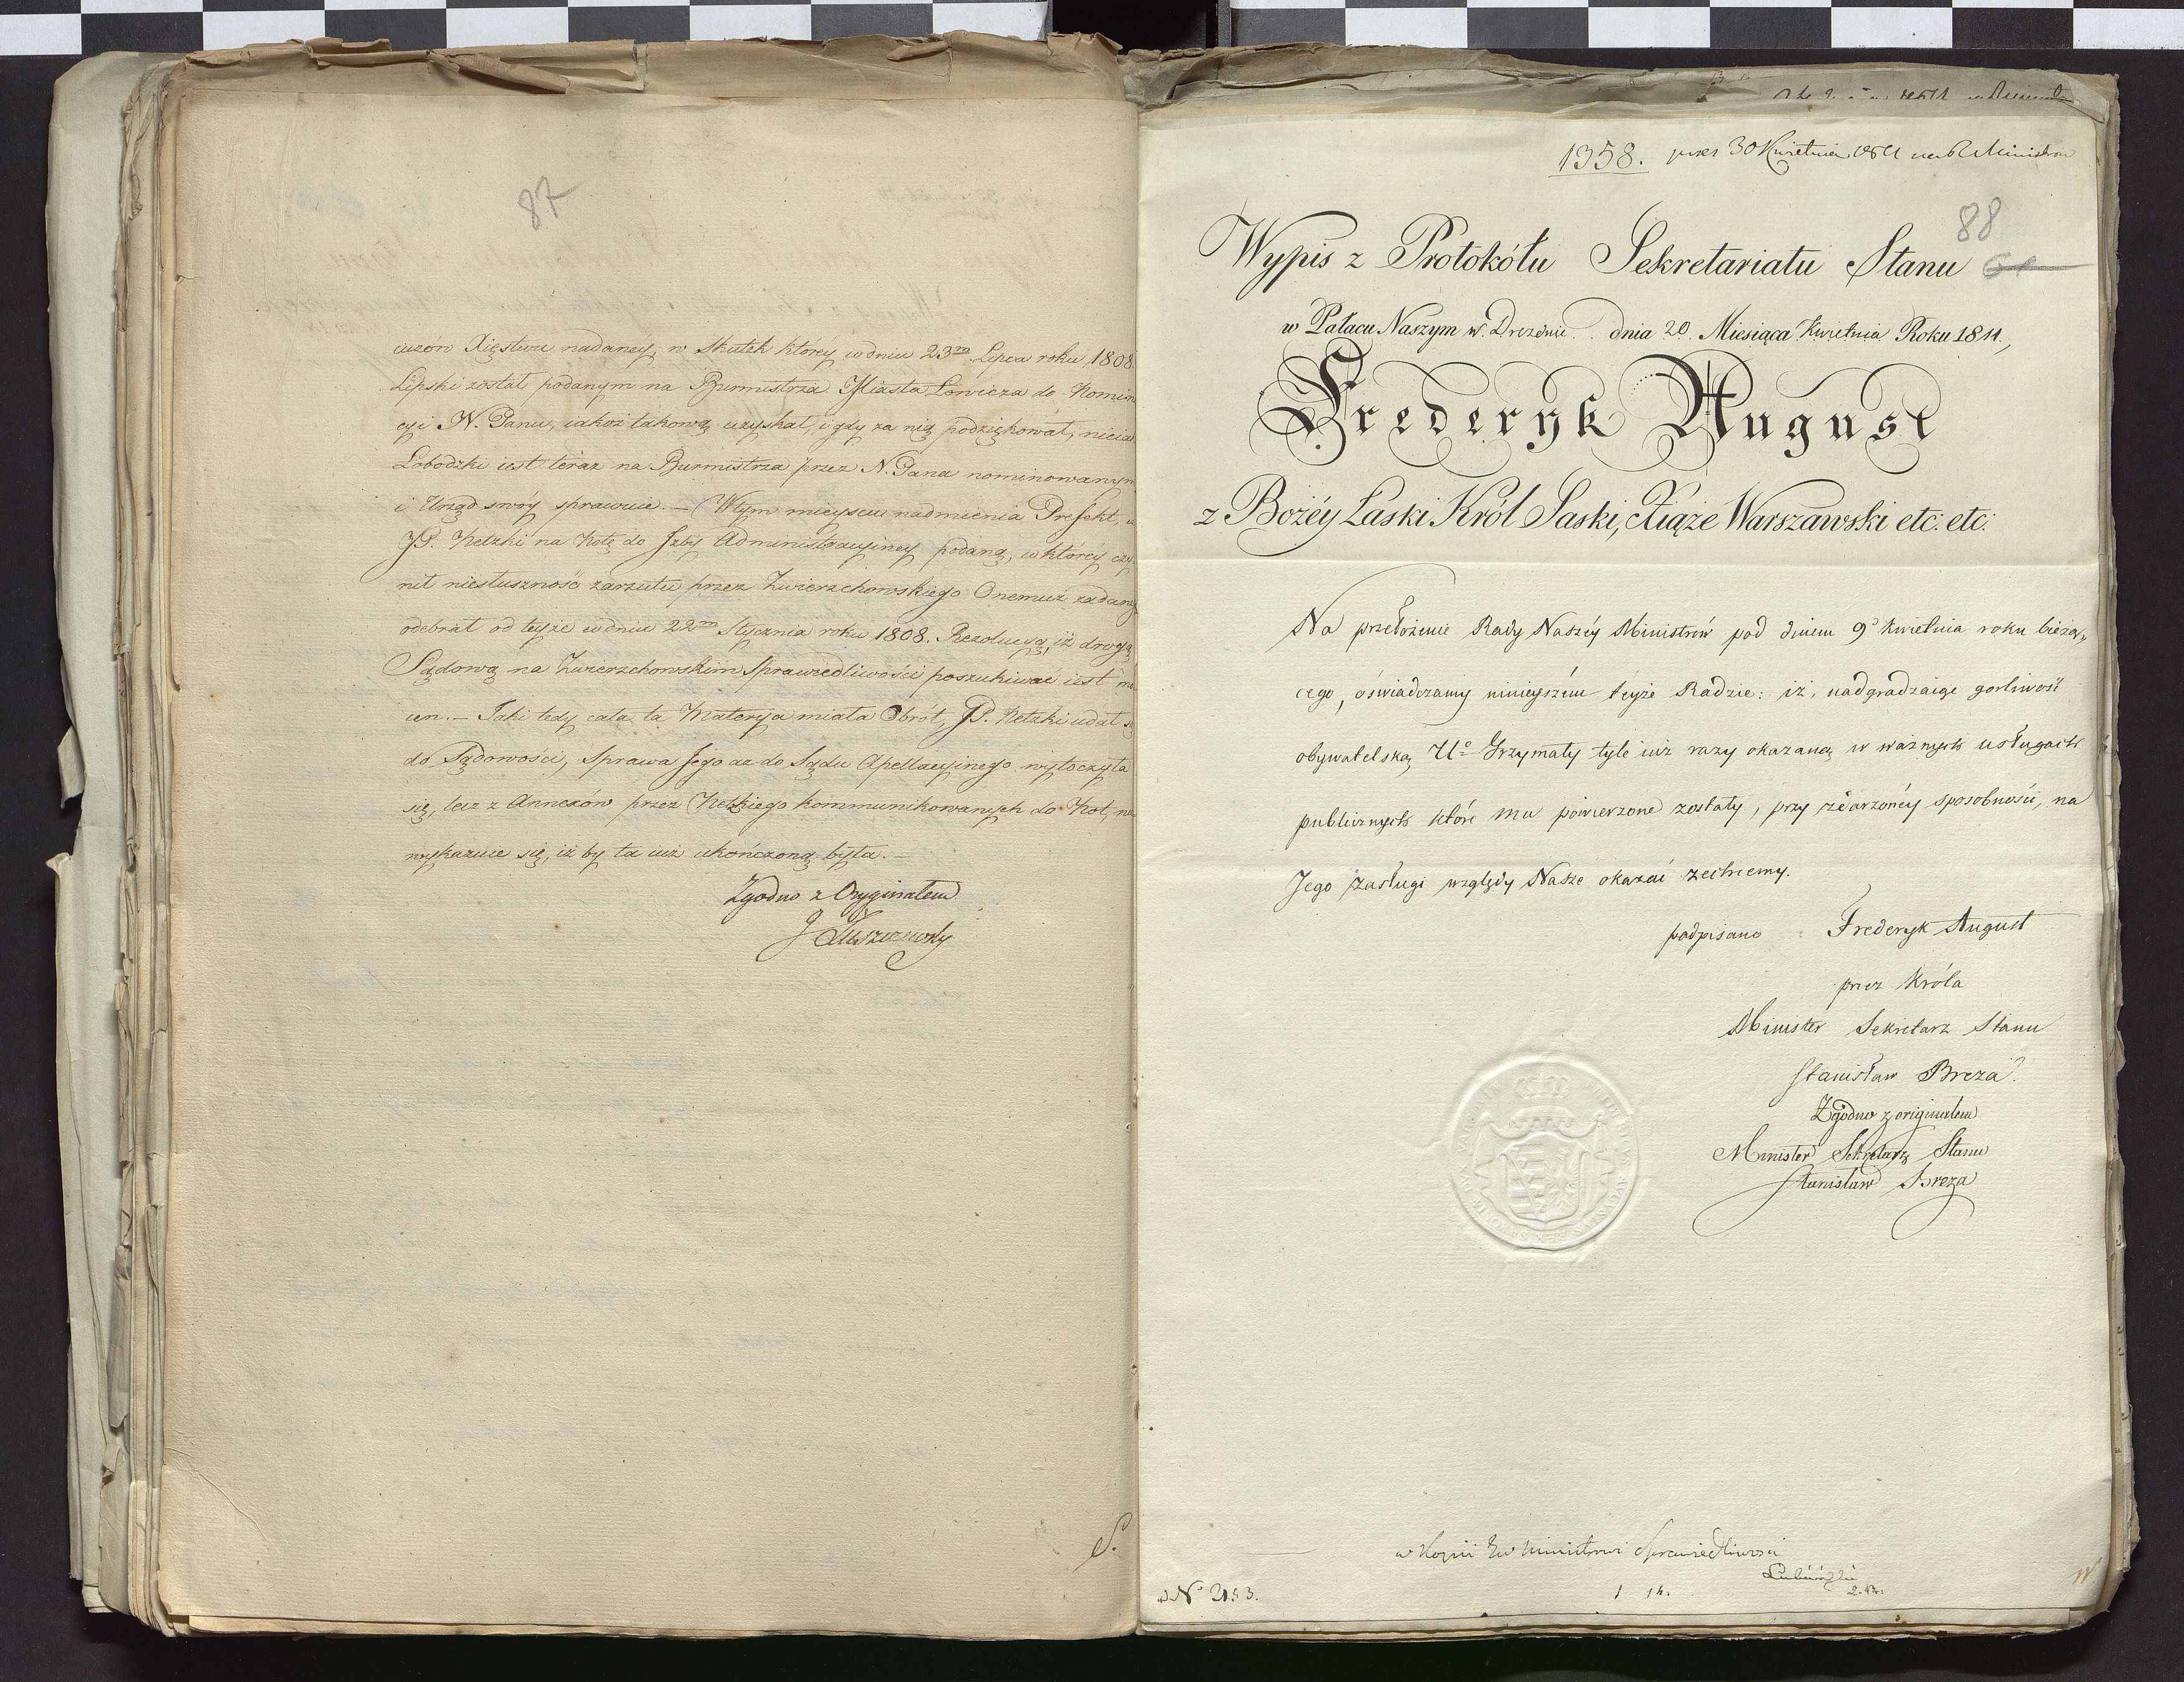 87
iuzów Xięstwu nadaney, w Skutek którey w dniu 23m Lipca roku 1808
Lipski został podanym na Burmistrza Miasta Łowicza do Nomin
cyi N. Panu, iakoż takową uzyskał, i gdy za nią podziękował,
Łobodzki iest teraz na Burmistrza przez N. Pana nominowanym
i Urząd swóy sprawuie. — (W tym mieyscu nadmienia Prefekt,
JP. Ketzki na Notę do Izby Administracyiney podaną, w którey czy
nił niesłuszność zarzutu przez Zwierzchowskiego Onemuż zadane
odebrał od teyże w dniu 22m Stycznia roku 1808. Rezolucyą, iż drogą
Sądową na Zwierzchowskim Sprawiedliwości poszukiwać iest
cen. — Taki tedy cała ta Materyia miała Obrót, JP. Ketzki udał
do Sądowości, Sprawa Jego aż do Sądu Apellacyinego wytoczyła
się, lecz z Annexów przez Ketzkiego kommunikowanych do Not, nie
wykazuie się, iż by ta iuż ukończoną była. —
Zgodno z Oryginałem
S.
1358. prez 30 Kwietnia 1811 na R Ministrow
88
Wypis z Protokółu Sekretariatu Stanu
w Pałacu Naszym w Dreznie dnia 20 Miesiąca Kwietnia Roku 1811.,
Frederyk August
z Bożéy Łaski Król Saski, Xiąże Warszawski etc. etc.
Na przełożenie Rady Naszéy Ministrów pod dniem 9o Kwietnia roku bieżą„
cego, oświadczamy ninieyszém teyże Radzie: iż, nadgradzaiąc gorliwość
obywatelską Uo Grzymały tyle iuż razy okazaną w ważnych usługach
publicznych które mu powierzone zostały, przy zdarzonéy sposobności, na
Jego zasługi względy Nasze okazać zechcemy.
podpisano Frederyk August
przez Króla
Minister Sekretarz Stanu
Stanisław Breza.
Zgodno z originałem
Minister Sekretarz Stanu
Stanisław Breza
w Kopii Ministrowi Sprawiedliwosci
No 2153.